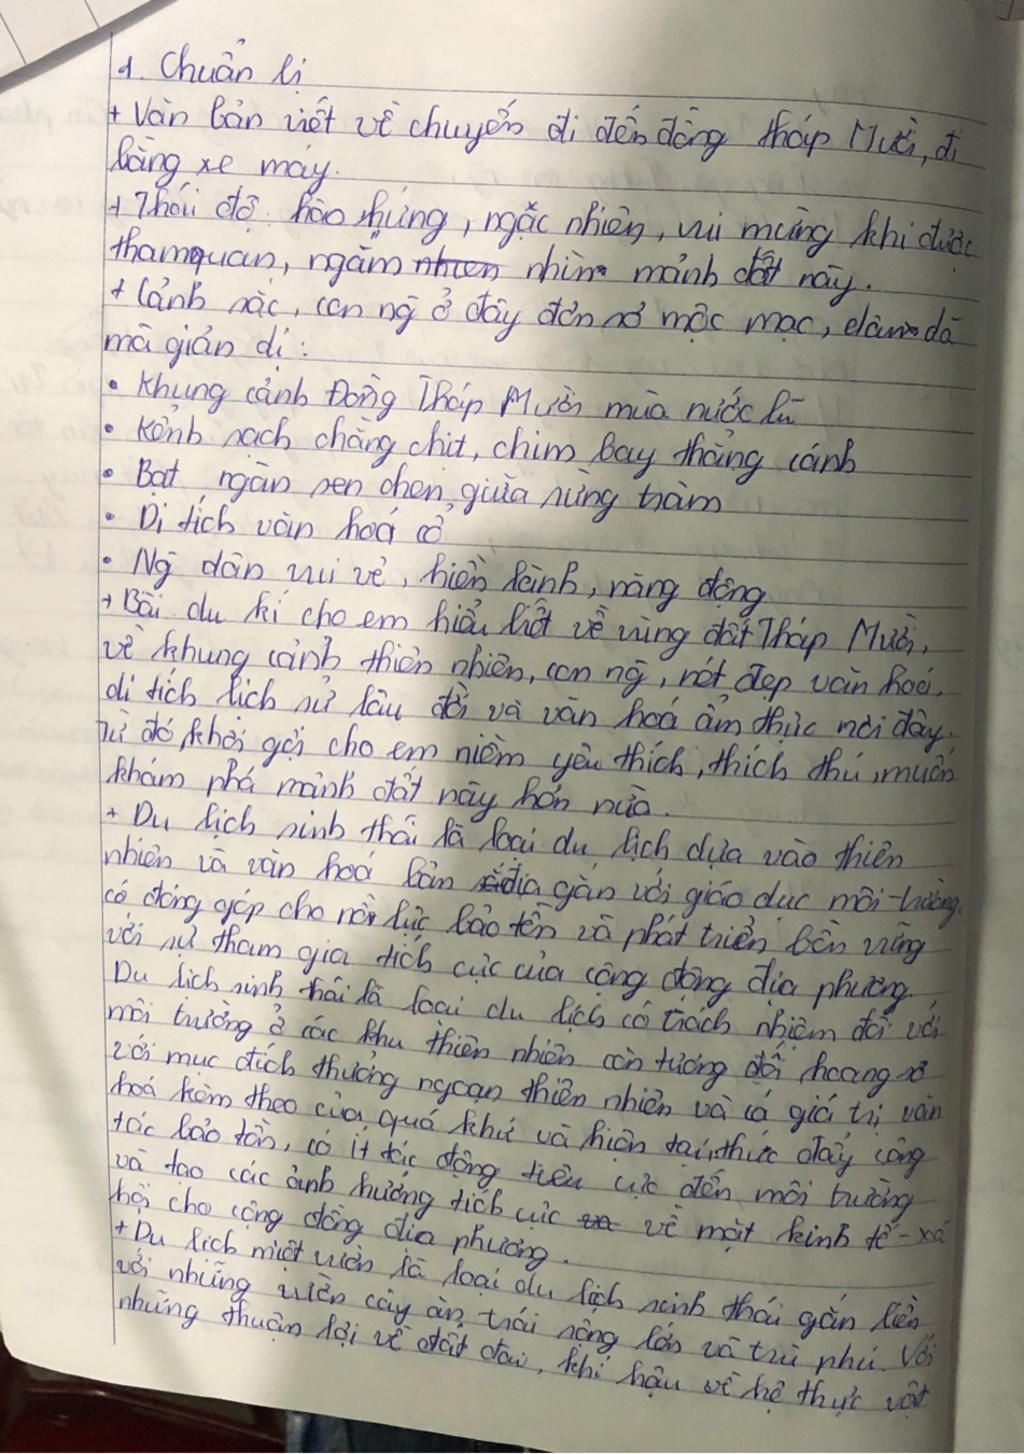 1. Chuẩn bị
+ Văn bản viết về chuyến đi đến đồng tháp Mười, đi
bằng xe máy.
+ Thái độ hào hứng, ngạc nhiên, vui mừng khi được
tham quan, ngắm nhìn mảnh đất này.
+ Cảnh sắc, con ng̃ ở đây đơn sơ mộc mạc, đậm đà
mà giản dị:
• Khung cảnh Đồng Tháp Mười mùa nước lũ
• Kênh rạch chằng chịt, chim bay thẳng cánh
• Bạt ngàn sen chen giữa rừng tràm
• Di tích văn hoá cổ
• Ng̃ dân vui vẻ, hiền lành, năng động
+ Bài du kí cho em hiểu biết về vùng đất Tháp Mười,
về khung cảnh thiên nhiên, con ng̃, nét đẹp văn hoá,
di tích lịch sử lâu đời và văn hoá ẩm thực nơi đây.
Từ đó, khơi gợi cho em niềm yêu thích, thích thú, muốn
khám phá mảnh đất này hơn nữa.
+ Du lịch sinh thái là loại du lịch dựa vào thiên
nhiên và văn hoá bản địa gắn với giáo dục môi trường,
có đóng góp cho nỗ lực bảo tồn và phát triển bền vững
với sự tham gia tích cực của cộng đồng địa phương.
Du lịch sinh thái là loại du lịch có trách nhiệm đối với
môi trường ở các khu thiên nhiên còn tương đối hoang sơ
với mục đích thưởng ngoạn thiên nhiên và cả giá trị văn
hoá kèm theo của quá khứ và hiện tại, thúc đẩy công
tác bảo tồn, có ít tác động tiêu cực đến môi trường
và tạo các ảnh hưởng tích cực về mặt kinh tế - xã
hội cho cộng đồng địa phương.
+ Du lịch miệt vườn là loại du lịch sinh thái gắn liền
với những vườn cây ăn trái rộng lớn và trù phú. Với
những thuận lợi về đất đai, khí hậu về hệ thực vật